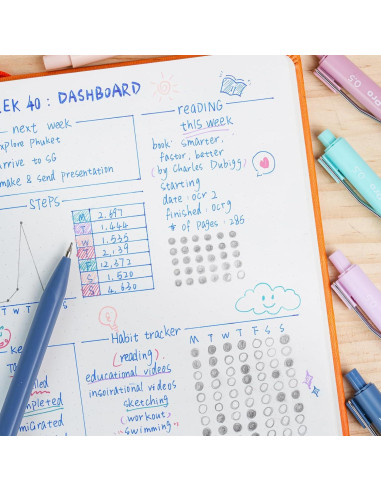 EEK 40 : DASHBOARD
next week
explore Phuket
arrive to SG
make & send presentation
reading
this week
book: smarter,
faster, better
(by Charles Duhigg)
starting
date: oct 2
finished: oct 9
# of pages: 285
STEPS
M 2.697
T 1.444
W 1.535
T 2.136
F 12,372
S 1.520
S 4.630
T W T F S
Habit tracker
M T W T F S S
(reading)
educational videos
inspirational videos
sketching
(workout)
swimming
ke
TO
mpleted
migrated
Pro 0.5